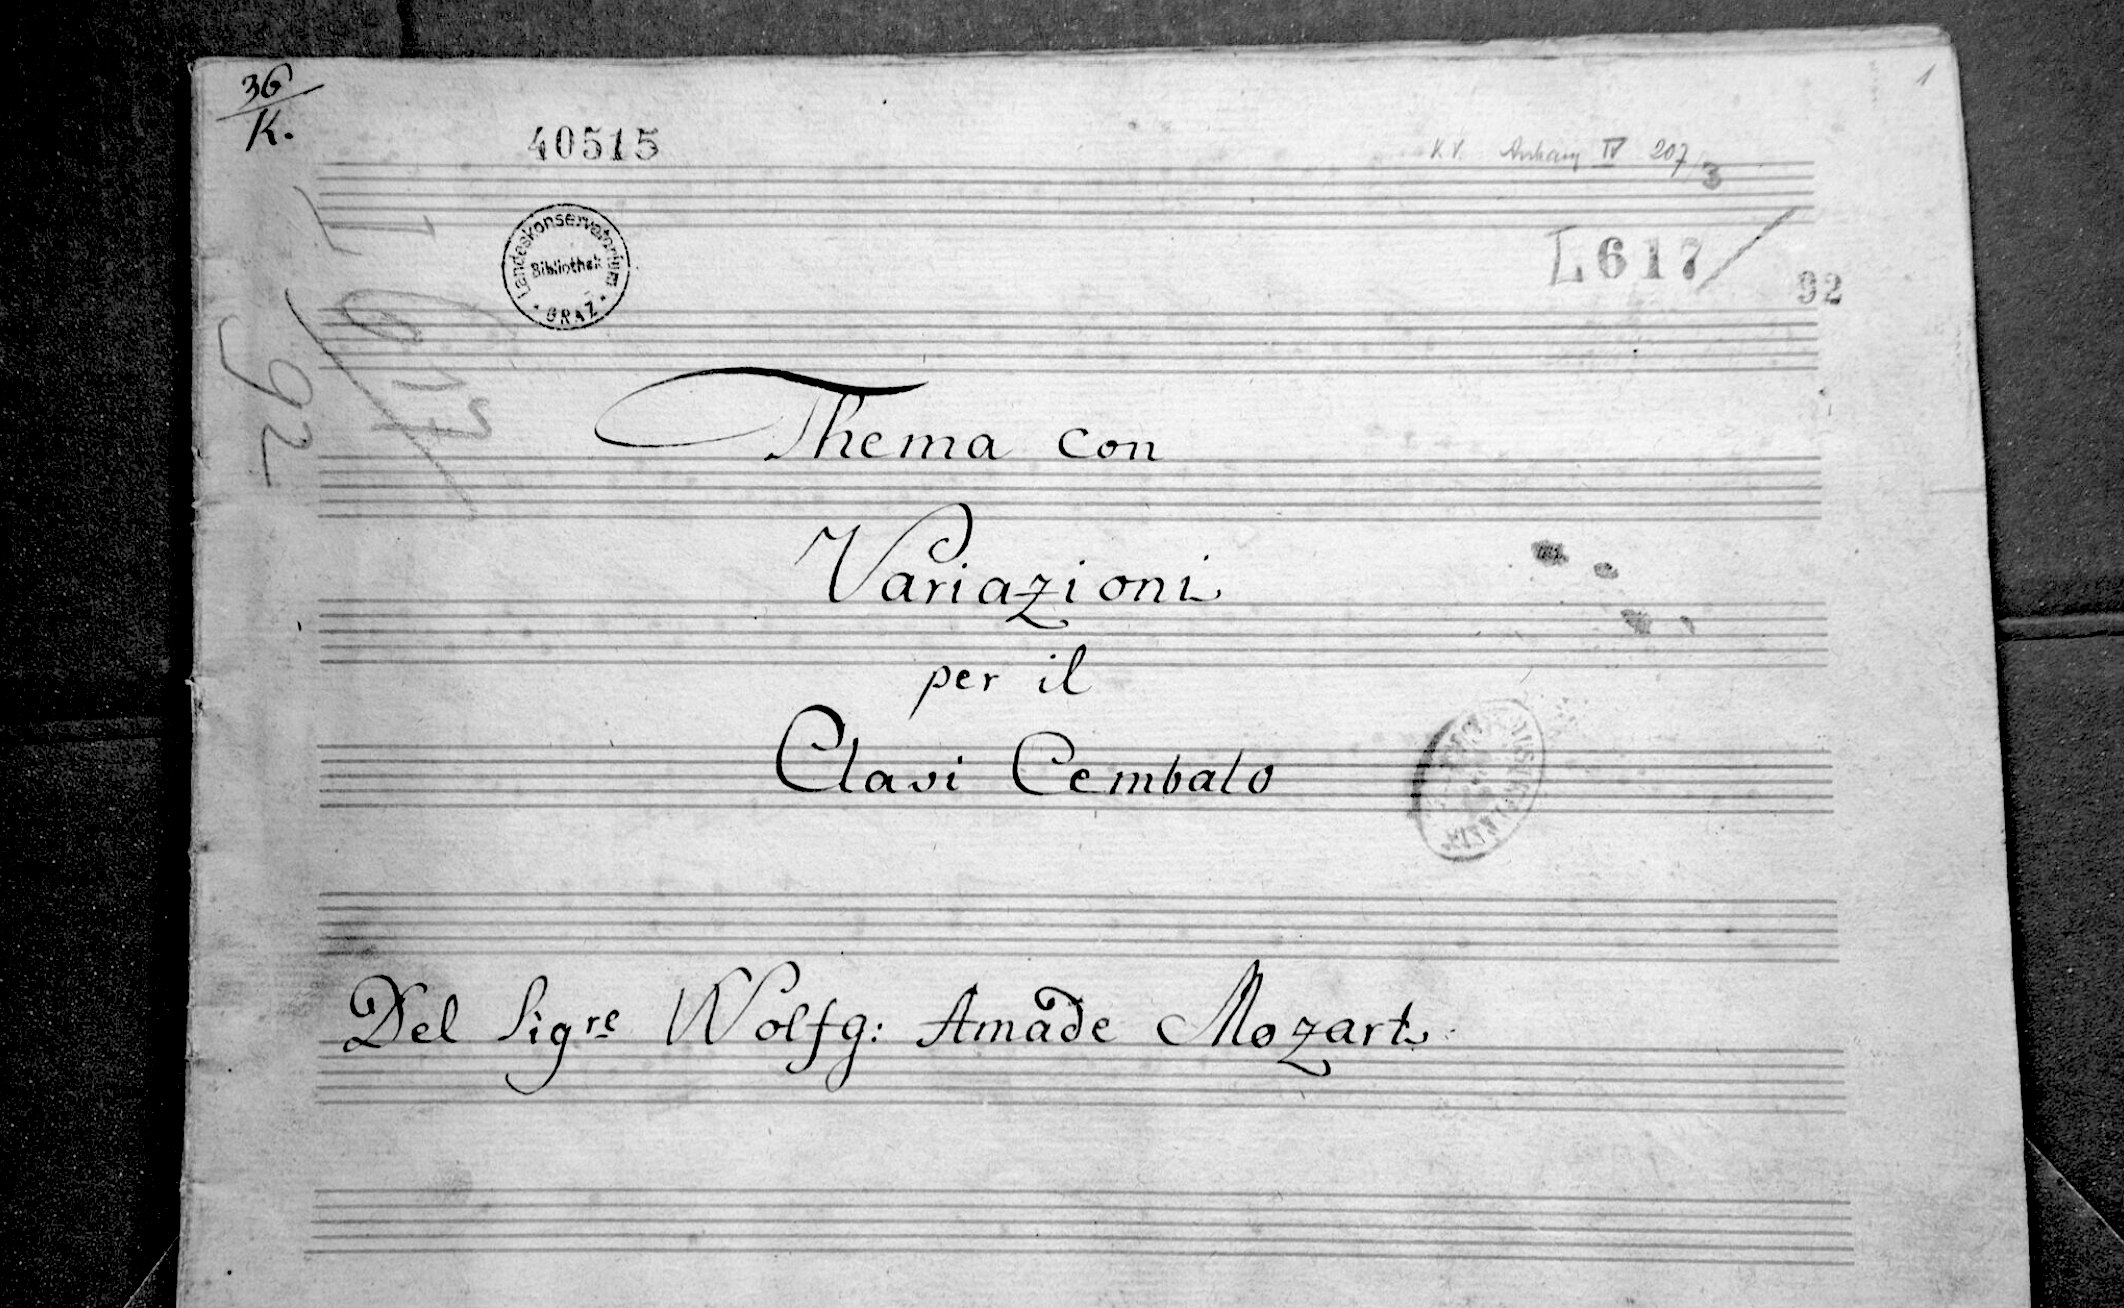 36
K.
1
40515
K.V. Anhang IV 207
3
Landeskonservatorium
Bibliothek
GRAZ
L617/
92
L 617
92
Thema con
Variazioni
per il
Clavi Cembalo
Del Sigre Wolfg: Amade Mozart